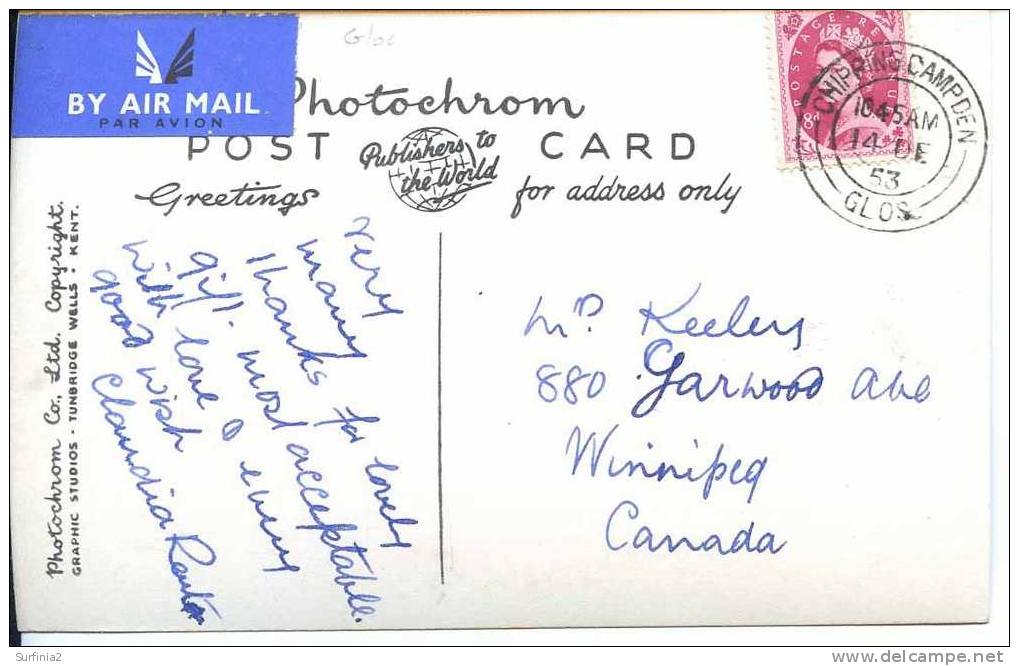 BY AIR MAIL
PAR AVION
Gloc
Photochrom
POST CARD
Publishers to
the World
Greetings
for address only
POSTAGE REVENUE
8D
CHIPPING CAMPDEN
10 45 AM
14 DE
53
GLOS
Photochrom Co., Ltd. Copyright.
GRAPHIC STUDIOS · TUNBRIDGE WELLS · KENT.
very
many
thanks for lovely
gift. most acceptable.
With love & every
good wish
Claudia
Keeley
880 Garwood ave
Winnipeg
Canada
Surfinia2
www.delcampe.net